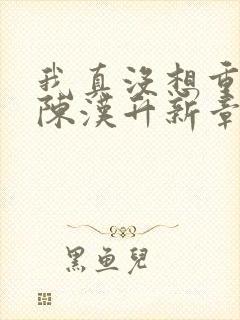 我真没想重
陳漢升新章
黑鱼兒